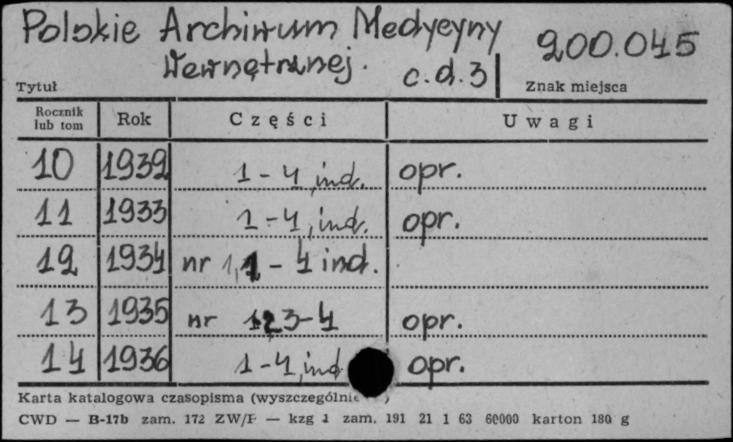 Polskie Archiwum Medycyny 200.045
Wewnętrznej. c.d.3
Tytuł Znak miejsca
Rocznik lub tom Rok Części Uwagi
10 1932 1-4, ind. opr.
11 1933 1-4, ind. opr.
12 1934 nr 1, - 4 ind.
13 1935 nr 1 2 3-4 opr.
14 1936 1-4, ind opr.
Karta katalogowa czasopisma
CWD — B-17b zam. 172 ZW/F — kzg 1 zam. 191 21 1 63 60000 karton 180 g